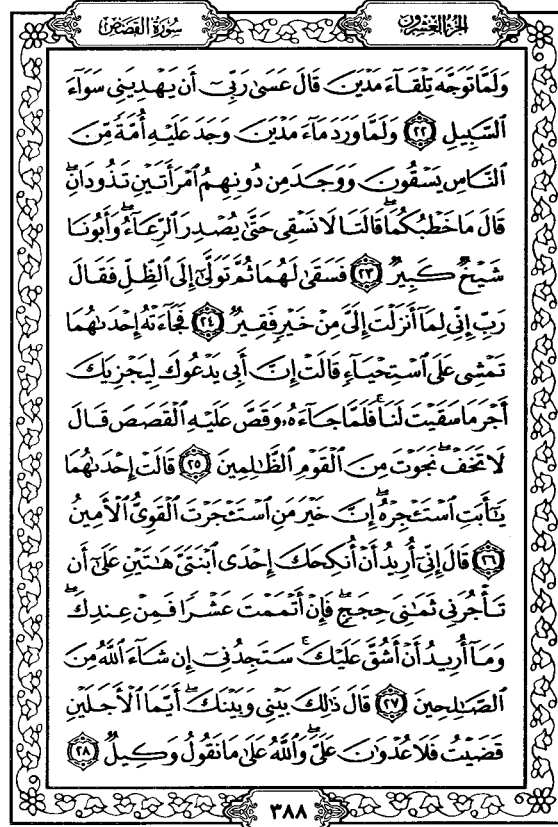 سُورَةُ القَصَصِ
الجُزْءُ العِشْرُونَ
وَلَمَّا تَوَجَّهَ تِلْقَآءَ مَدْيَنَ قَالَ عَسَىٰ رَبِّىٓ أَن يَهْدِيَنِى سَوَآءَ
ٱلسَّبِيلِ ﴿٢٢﴾ وَلَمَّا وَرَدَ مَآءَ مَدْيَنَ وَجَدَ عَلَيْهِ أُمَّةً مِّنَ
ٱلنَّاسِ يَسْقُونَ وَوَجَدَ مِن دُونِهِمُ ٱمْرَأَتَيْنِ تَذُودَانِۖ
قَالَ مَا خَطْبُكُمَاۖ قَالَتَا لَا نَسْقِى حَتَّىٰ يُصْدِرَ ٱلرِّعَآءُۖ وَأَبُونَا
شَيْخٌ كَبِيرٌ ﴿٢٣﴾ فَسَقَىٰ لَهُمَا ثُمَّ تَوَلَّىٰٓ إِلَى ٱلظِّلِّ فَقَالَ
رَبِّ إِنِّى لِمَآ أَنزَلْتَ إِلَىَّ مِنْ خَيْرٍ فَقِيرٌ ﴿٢٤﴾ فَجَآءَتْهُ إِحْدَىٰهُمَا
تَمْشِى عَلَى ٱسْتِحْيَآءٍ قَالَتْ إِنَّ أَبِى يَدْعُوكَ لِيَجْزِيَكَ
أَجْرَ مَا سَقَيْتَ لَنَاۚ فَلَمَّا جَآءَهُۥ وَقَصَّ عَلَيْهِ ٱلْقَصَصَ قَالَ
لَا تَخَفْۖ نَجَوْتَ مِنَ ٱلْقَوْمِ ٱلظَّٰلِمِينَ ﴿٢٥﴾ قَالَتْ إِحْدَىٰهُمَا
يَٰٓأَبَتِ ٱسْتَـْٔجِرْهُۖ إِنَّ خَيْرَ مَنِ ٱسْتَـْٔجَرْتَ ٱلْقَوِىُّ ٱلْأَمِينُ
﴿٢٦﴾ قَالَ إِنِّىٓ أُرِيدُ أَنْ أُنكِحَكَ إِحْدَى ٱبْنَتَىَّ هَٰتَيْنِ عَلَىٰٓ أَن
تَأْجُرَنِى ثَمَٰنِىَ حِجَجٍۖ فَإِنْ أَتْمَمْتَ عَشْرًا فَمِنْ عِندِكَۖ
وَمَآ أُرِيدُ أَنْ أَشُقَّ عَلَيْكَۚ سَتَجِدُنِىٓ إِن شَآءَ ٱللَّهُ مِنَ
ٱلصَّٰلِحِينَ ﴿٢٧﴾ قَالَ ذَٰلِكَ بَيْنِى وَبَيْنَكَۖ أَيَّمَا ٱلْأَجَلَيْنِ
قَضَيْتُ فَلَا عُدْوَٰنَ عَلَىَّۖ وَٱللَّهُ عَلَىٰ مَا نَقُولُ وَكِيلٌ ﴿٢٨﴾
٣٨٨